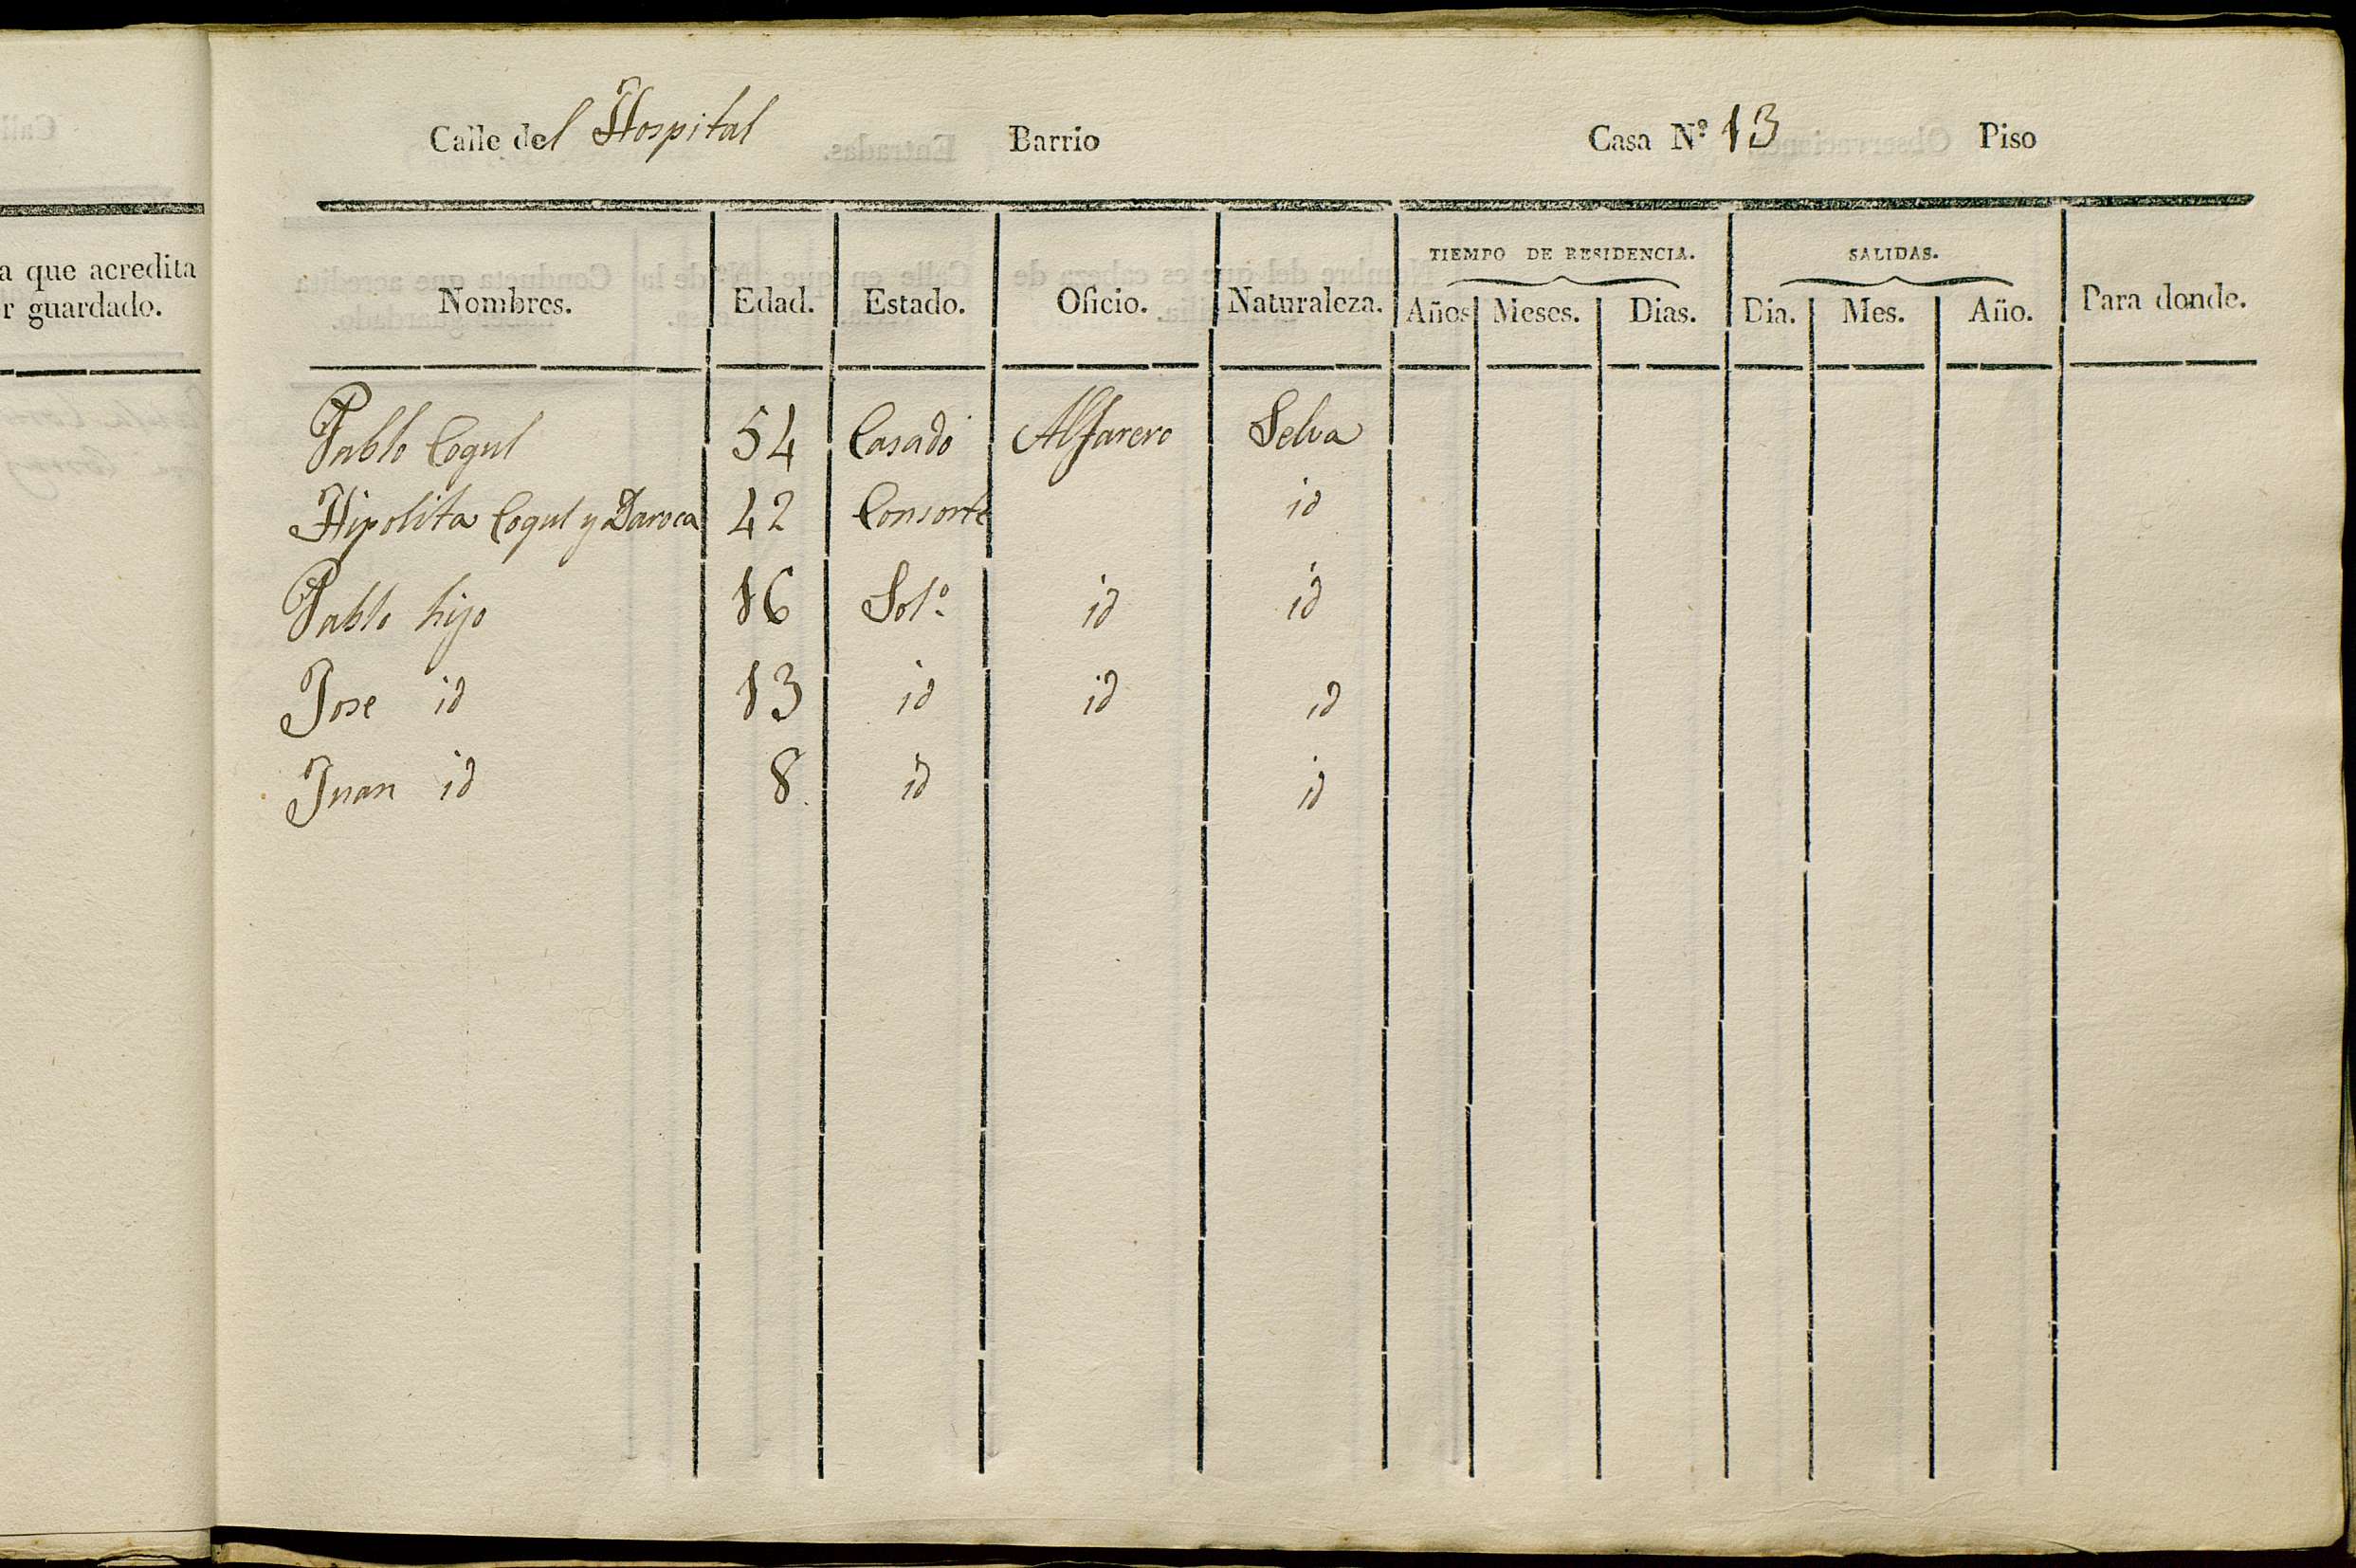 a que acredita
r guardado.
Calle del Hospital Barrio Casa Nº 13 Piso
TIEMPO DE RESIDENCIA. SALIDAS.
Nombres. Edad. Estado. Oficio. Naturaleza. Años Meses. Dias. Dia. Mes. Año. Para donde.
Pablo Cogul 54 Casado Alfarero Selva
Hipolita Cogul y Daroca 42 Consorte id
Pablo hijo 16 Solº id id
Jose id 13 id id id
Juan id 8 id id